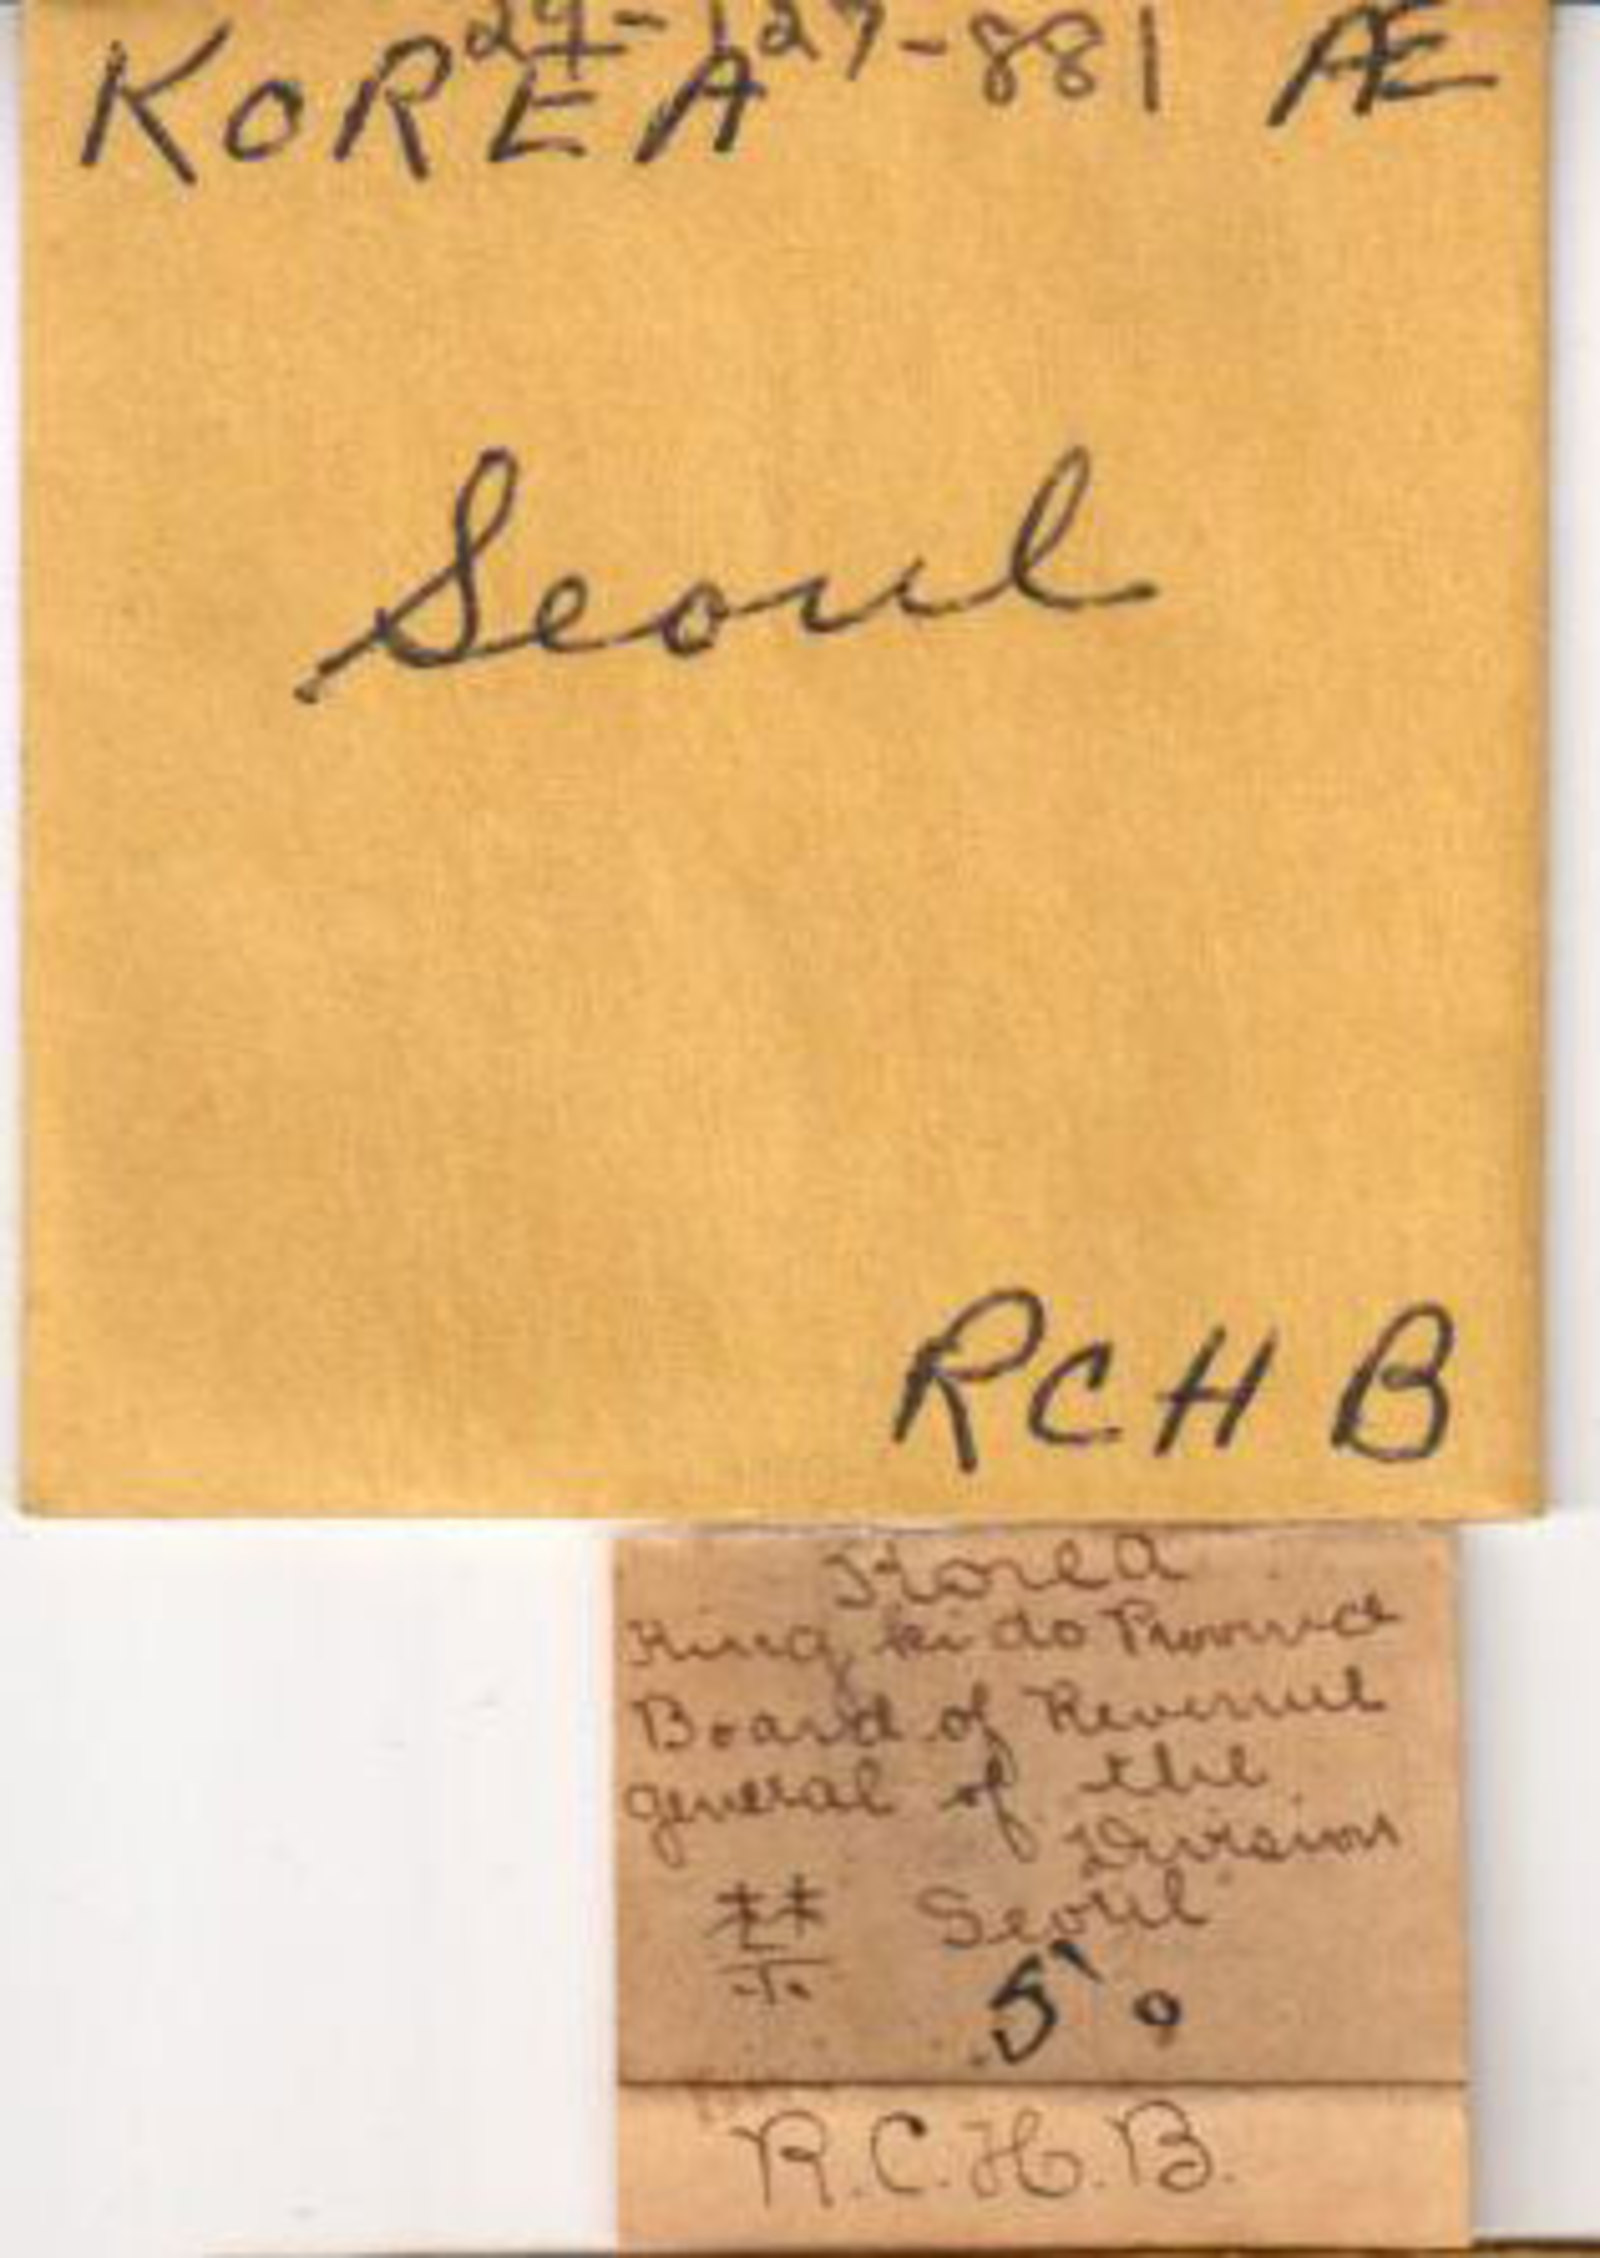 24-127-881
KOREA Æ
Seoul
RCH B
Korea
King ki do Province
Board of Revenue
general of the
Division
Seoul
5
R.C.H.B.